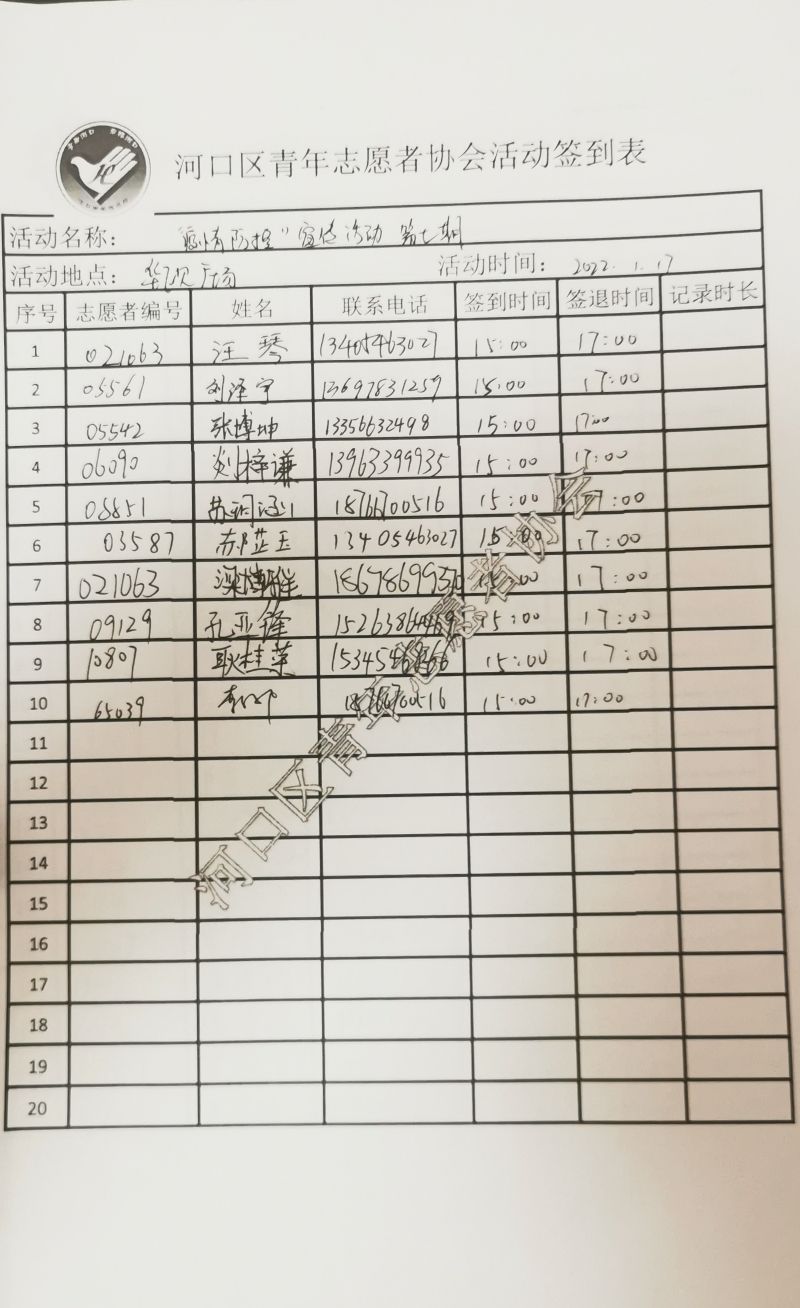 河口区青年志愿者协会活动签到表
活动名称： "疫情防控"宣传活动 第七期
活动地点： 广场 活动时间： 2022.1.17
序号 志愿者编号 姓名 联系电话 签到时间 签退时间 记录时长
1 021063 汪琴 13405463027 15:00 17:00
2 05561 刘泽宇 13697831259 15:00 17:00
3 05542 张博坤 13356632498 15:00 17:00
4 06090 刘梓谦 13963399935 15:00 17:00
5 苏润涵 18766700516 15:00 17:00
6 03587 13405463027 15:00 17:00
7 021063 15:00 17:00
8 09129 孔亚锋 15:00 17:00
9 10807 耿桂荣 15:00 17:00
10 65039 18766700516 15:00 17:00
11
12
13
14
15
16
17
18
19
20
河口区青年志愿者协会